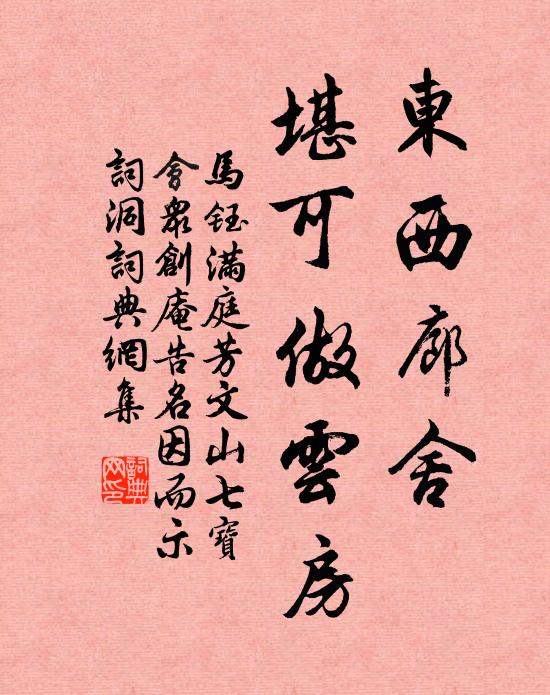 東西廊舍
堪可做雲房
馬鈺滿庭芳文山七寶
會眾創庵告名因而示
詞洞詞典網集
詞典網印